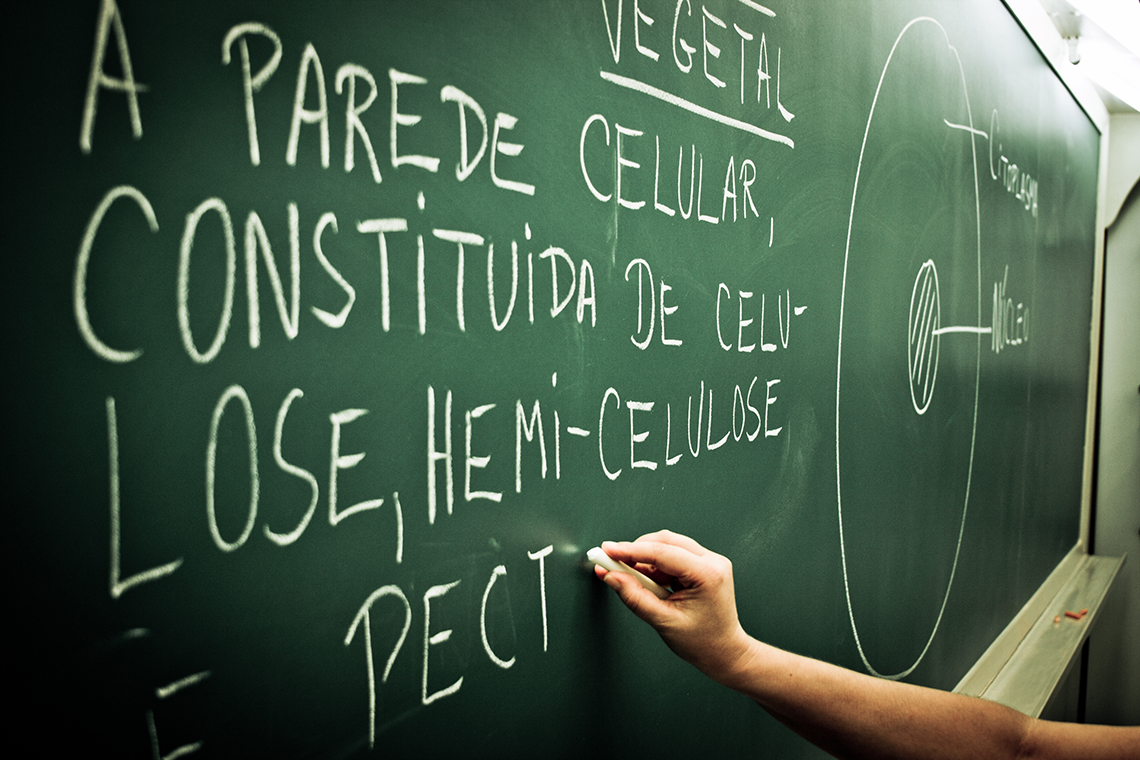 VEGETAL
A PAREDE CELULAR,
CONSTITUIDA DE CELU-
LOSE, HEMI-CELULOSE
E PECT
CITOPLASMA
NÚCLEO